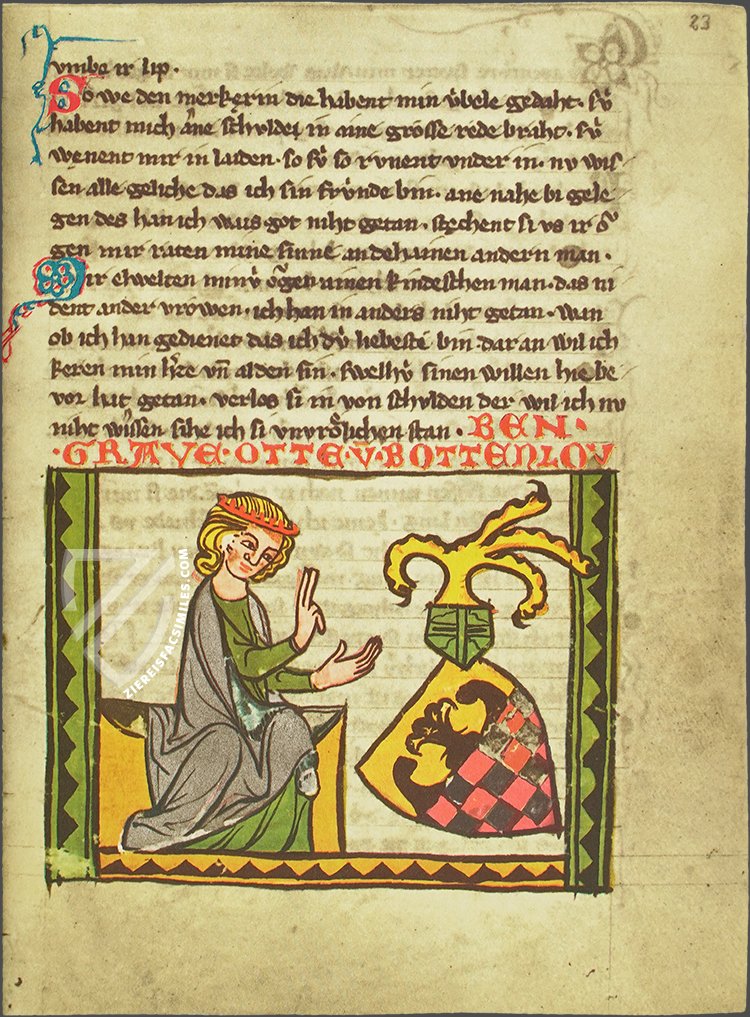 23
vmbe ir lip·
So we den merkerin die habent min v̊bele gedaht· sv́
habent mich ane schvldei in aine grosse rede braht· sv́
wenent mir in laiden· so sv́ so rvnent vnder in· nv wis
sen alle geliche das ich sin frv́nde bin· ane nahe bi gele
gen des han ich wais got niht getan· stęchent si vs ir o̊
gen mir raten mine sinne an dehainen andern man·
Mir erwelten minv́ o̊gen ainen kindeschen man· das ni
dent ander vrowen· ich han in anders niht getan· wan
ob ich han gedienet das ich dv́ liebeste bin· dar an wil ich
keren min h̾ze vn̄ al den sin· swelhv́ sinen willen hie be
vor hat getan· verlos si in von schvlden der wil ich nv
niht wissen sihe ich si vnvro̊lichen stan· BEN·
·GRAVE·OTTE·V·BOTTENLOV
ZIEREISFACSIMILES.COM